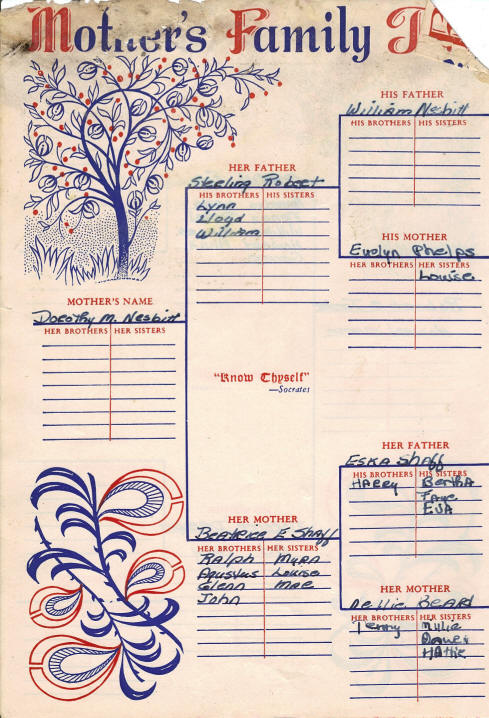 Mother's Family T
HIS FATHER
William Nesbitt
HIS BROTHERS HIS SISTERS
HER FATHER
Sterling Robert
HIS BROTHERS HIS SISTERS
Lynn
Lloyd
William
HIS MOTHER
Evelyn Phelps
HER BROTHERS HER SISTERS
Louise
MOTHER'S NAME
Dorothy M. Nesbitt
HER BROTHERS HER SISTERS
"Know Thyself"
—Socrates
HER FATHER
Eska Shaff
HIS BROTHERS HIS SISTERS
Harry Bertha
Faye
Eva
HER MOTHER
Beatrice E Shaff
HER BROTHERS HER SISTERS
Ralph Myrn
Agustus Louise
Glenn Mae
John
HER MOTHER
Nellie Beard
HER BROTHERS HER SISTERS
Hattie